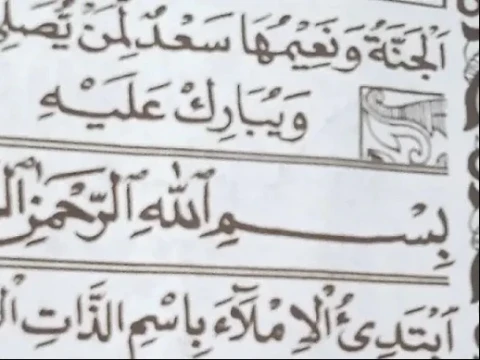 اَلْجَنَّةُ وَنَعِيْمُهَا سَعْدٌ لِمَنْ يُصَلِّي
وَيُبَارِكْ عَلَيْهِ
بِسْمِ ٱللّٰهِ ٱلرَّحْمٰنِ
اَبْتَدِئُ الْإِمْلَآءَ بِاسْمِ الذَّاتِ